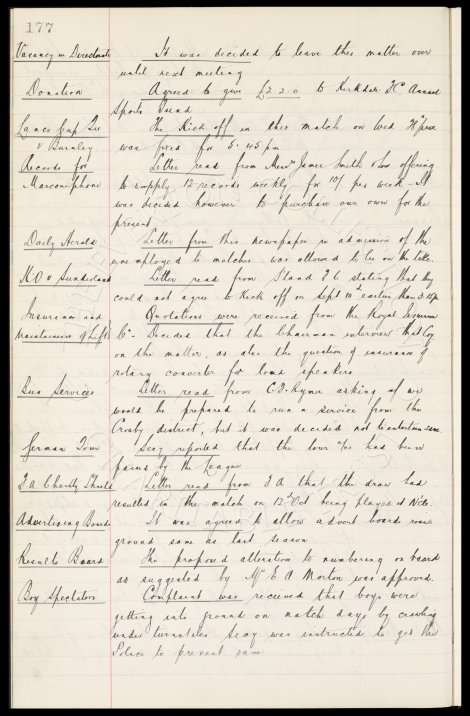 177
Vacancy on Directorate It was decided to leave this matter over
until next meeting
Donation Agreed to give £2 2 0 to Kirkdale Annual
Sports Fund
Lancs Cup Tie The Kick off in this match on Wed
v Burnley was fixed for 5.45 pm
Records for Letter read from James Smith & Son offering
Marconiphone to supply 12 records weekly for 10/ per week. It
was decided however to purchase our own for the
present
Daily Herald Letter from this newspaper re admission of the
unemployed to matches was allowed to lie on the table
K.O. v Sunderland Letter read from S'land F C stating that they
could not agree to Kick off on Sept 10th earlier than
Insurance and Quotations were received from the Royal Insurance
Maintenance of Lifts Co. Decided that the Chairman interview that Coy
on the matter, as also the question of insurance of
rotary converter for loud speakers.
Bus Services Letter read from C.F. Rymer asking if we
would be prepared to run a service from the
Crosby district, but it was decided not to entertain same
German Tour Secy reported that the tour a/cs had been
passed by the League
F A Charity Shield Letter read from F A that the draw had
resulted in the match on 12th Oct being played at N'cle.
Advertising Boards It was agreed to allow advert boards
ground same as last season
Results Board The proposed alteration to numbering on board
as suggested by Mr E A Morton was approved.
Boy Spectators Complaint was received that boys were
getting into ground on match days by crawling
under turnstiles Secy was instructed to get the
Police to prevent same